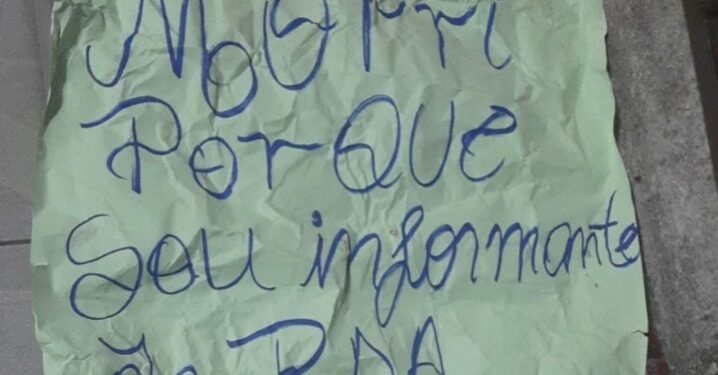 Morri
PorQUe
Sou informante